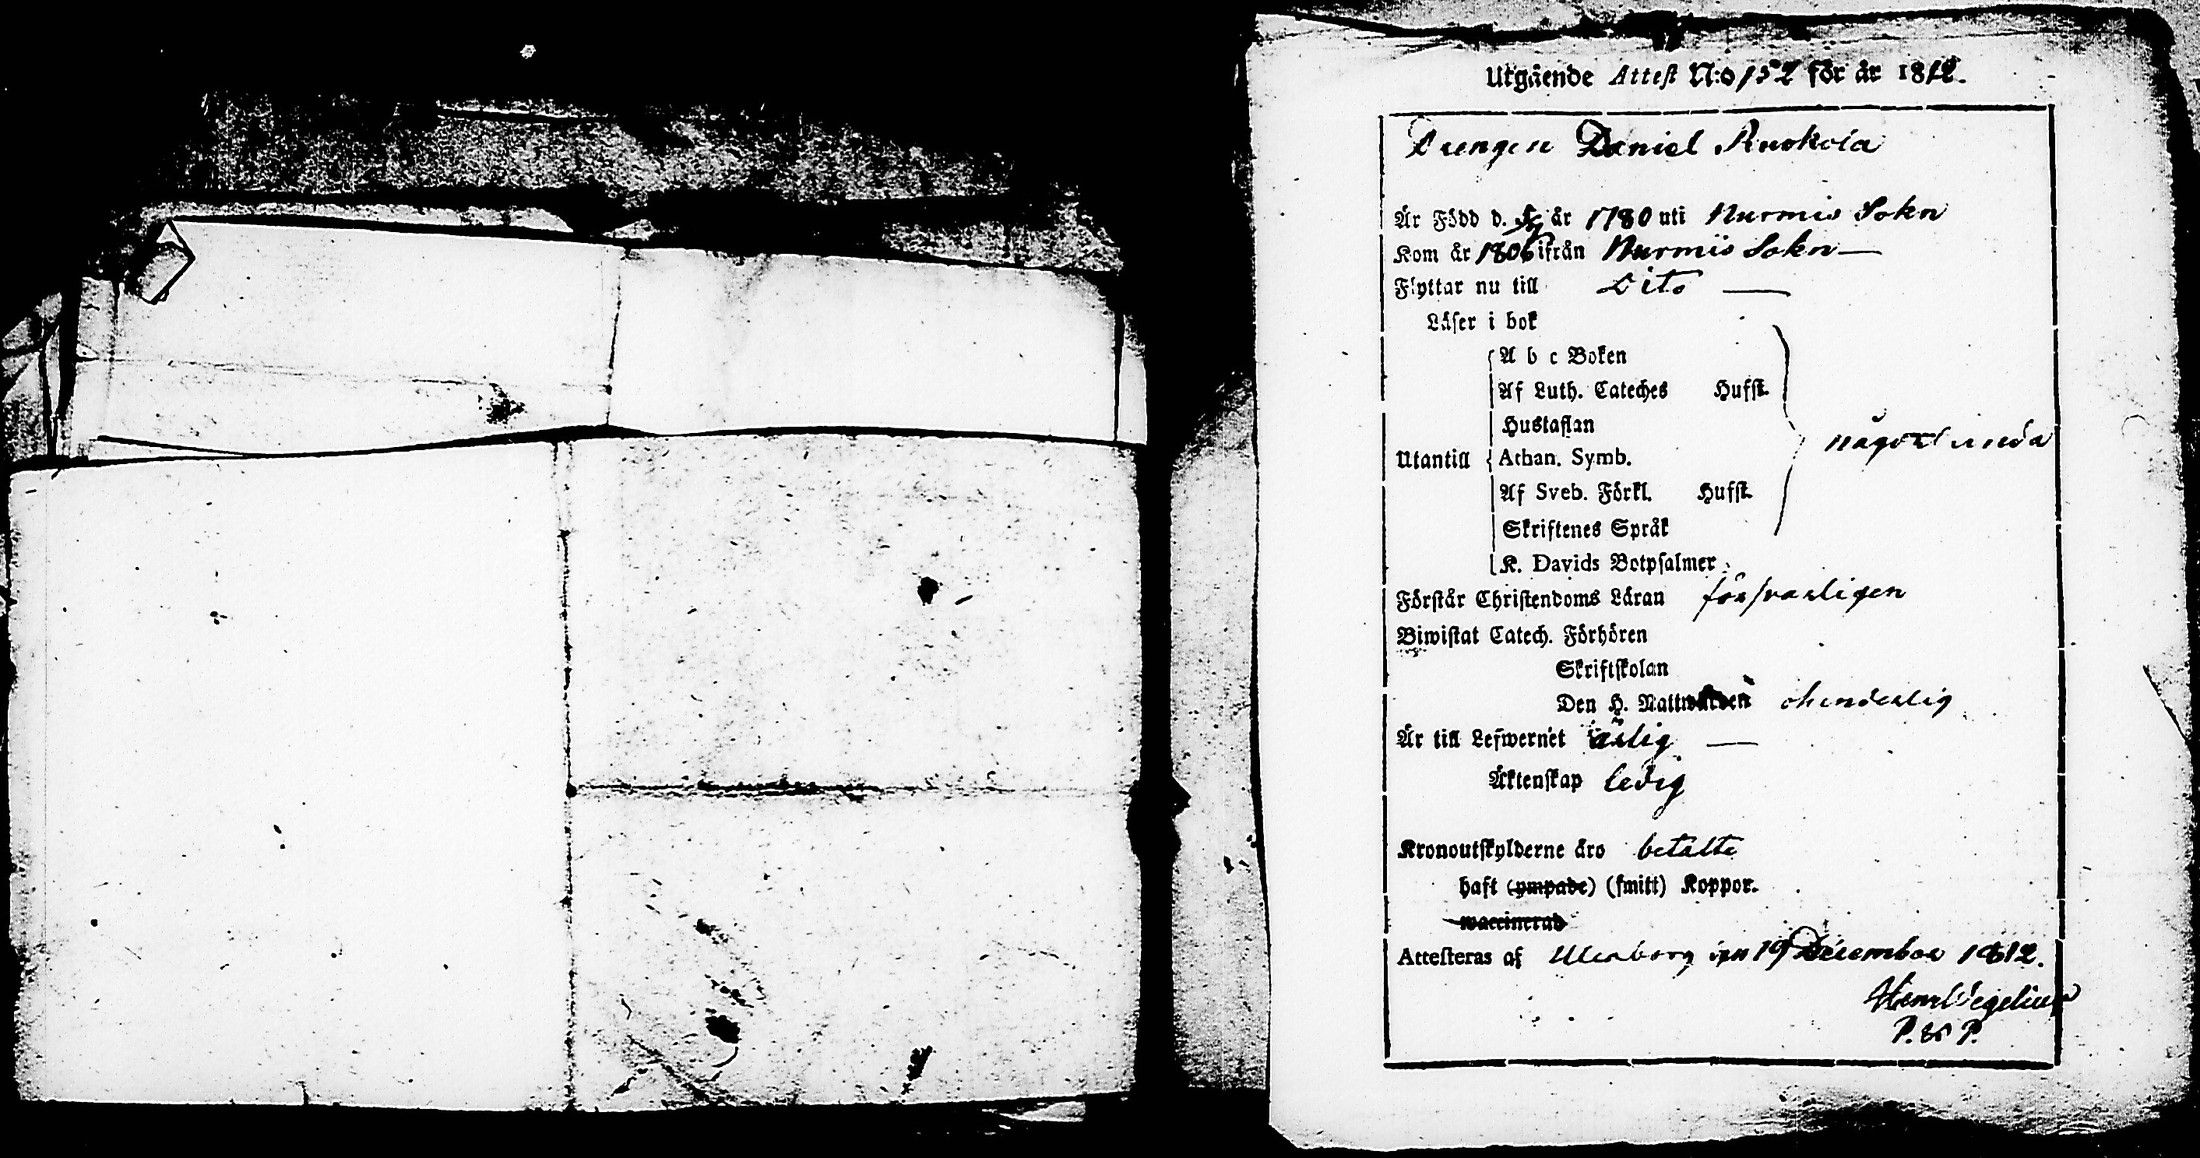 Utgående Attest N:o 152 för år 1812.
Drengen Daniel Ruokola
Är Född d. år 1780 uti Nurmis Sokn
Kom år 1806 ifrån Nurmis Sokn —
Flyttar nu till Dito —
Läser i bok
A b c Boken
Af Luth. Cateches Hufst.
Hustaflan
någorlunda
Utantill Athan. Symb.
Af Sveb. Förkl. Hufst.
Skriftenes Språk
K. Davids Botpsalmer
Förstår Christendoms Läran försvarligen
Biwistat Catech. Förhören
Skriftskolan
Den H. Nattwarden ohinderlig
Är till Lefwernet ärlig —
Äktenskap ledig
Kronoutskylderne äro betalte
haft (ympade) (smitt) Koppor.
waccinerad
Attesteras af Uleåborg den 19 December 1812.
Henr Wegelius
P. & P.